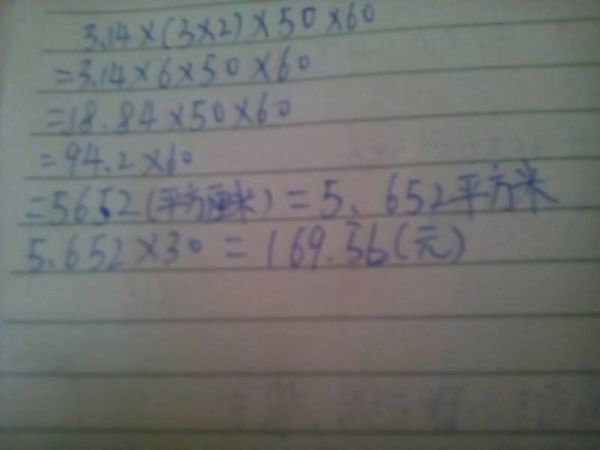 3.14×(3×2)×50×60
=3.14×6×50×60
=18.84×50×60
=94.2×60
=5652(平方厘米)=5、652平方米
5.652×30=169.56(元)